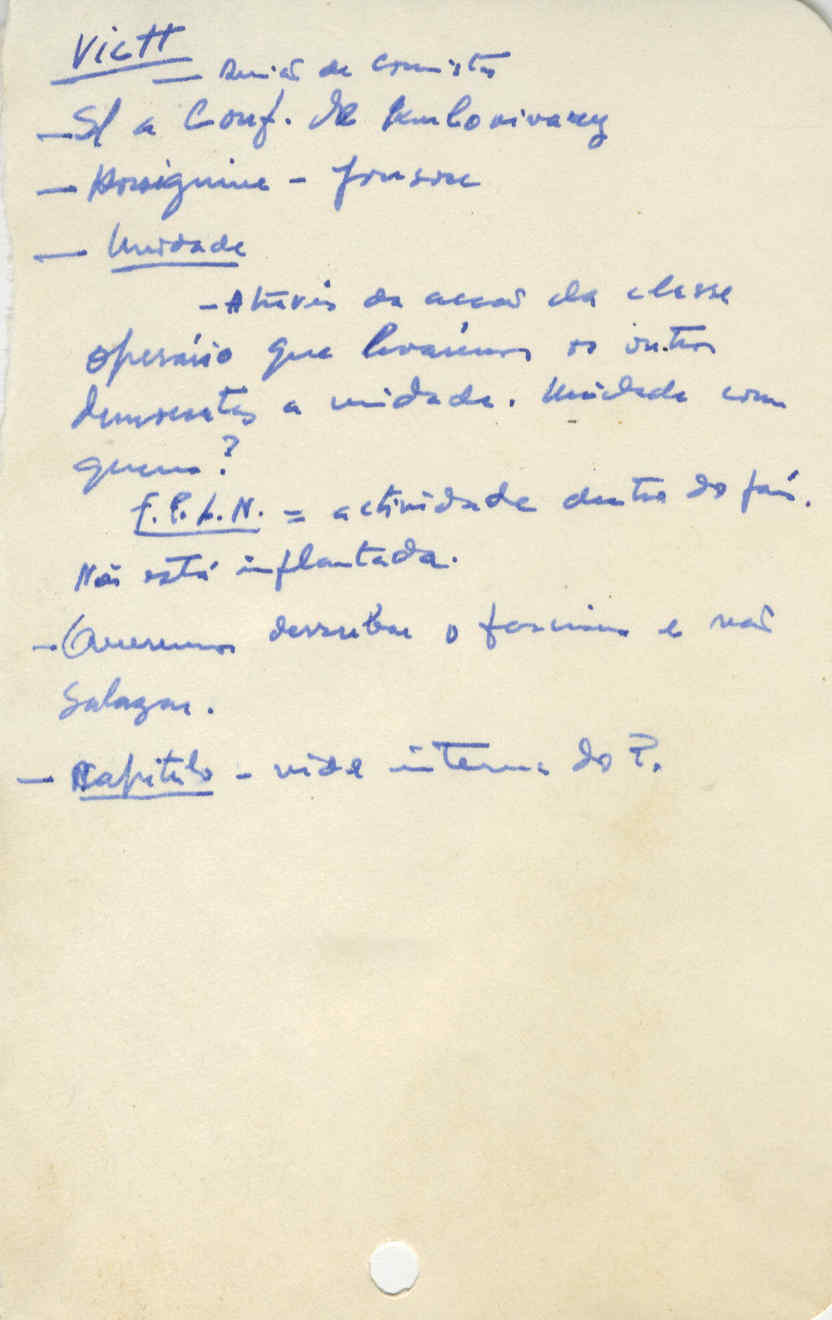 Victt
— de
— S/ a Conf. de
—
— Unidade
— Através da acção da classe
operário que levaremos os outros
democratas a unidade. Unidade com
quem?
F.P.L.N. = actividade dentro do país.
Não está implantada.
— Queremos derrubar o fascismo e não
Salazar.
— Capítulo - vida interna do P.